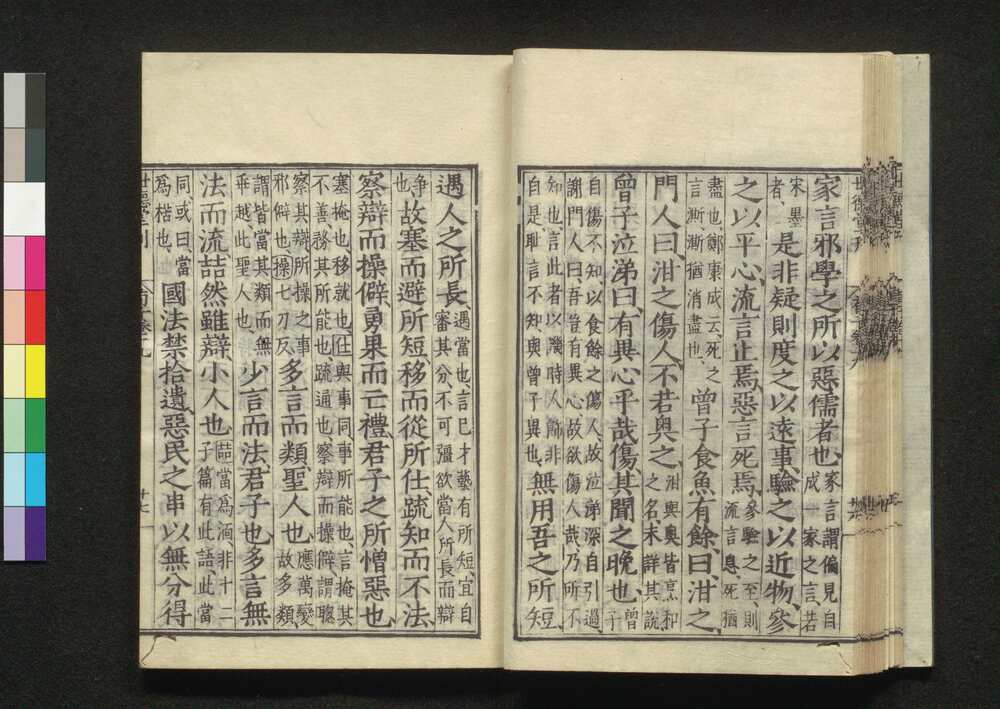 家言邪學之所以惡儒者也、家言謂偏見自成一家之言、若
宋墨者、是非疑則度之以遠事、驗之以近物、參
之以平心、流言止焉、惡言死焉、參驗之至、則流言息死猶
盡也、鄭康成云、死之言澌澌猶消盡也、曾子食魚有餘、曰、泔之、
門人曰、泔之傷人、不若奧之、泔與奧皆烹和之名未詳其說
曾子泣涕曰、有異心乎哉、傷其聞之晚也、曾子
自傷不知以食餘之傷人、故泣涕深自引過、謝門人曰、吾豈有異心故欲傷人哉、乃所不
知也、言此者以譏時人飾非自是、耻言不知、與曾子異也、無用吾之所短、
遇人之所長、遇當也、言己才藝有所短、宜自審其分、不可彊欲當人所長而辯
爭也、故塞而避所短、移而從所仕、疏知而不法、
察辯而操僻、勇果而亡禮、君子之所憎惡也、
塞掩也、移就也、仕與事同、事所能也、言掩其不善、務其所能也、疏通也、察辯而操僻、謂聰
察其辯、所操之事邪僻也、操七刀反、多言而類、聖人也、應萬變故多類、
謂皆當其類而無乖越、此聖人也、少言而法、君子也、多言無
法而流、喆然、雖辯、小人也、喆當爲湎、非十二子篇有此語、此當
同、或曰、當爲楷也、國法禁拾遺、惡民之串以無分得